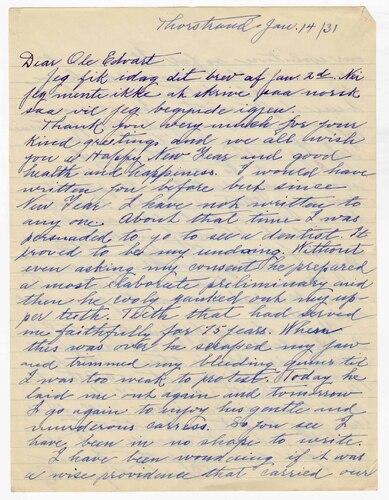 Thorstrand Jan. 14/31
Dear Ole Edvart
Jeg fik idag dit brev af Jan 2d. Nei
jeg mente ikke at skrive paa norsk
saa vil jeg begynde igjen.
Thank you very much for your
kind greetings and we all wish
you a Happy New Year and good
health and happiness. I would have
written you before but since
New Year I have not written to
any one. About that time I was
persuaded to go to see a dentist. It
proved to be my undoing. Without
even asking my consent he prepared
a most elaborate preliminary and
then he cooly yanked out my up
per teeth. Teeth that had served
me faithfully for 75 years. When
this was over he scraped my jaw
and trimmed my bleeding gums til
I was too weak to protest. Today he
laid me out again and tomorrow
I go again to enjoy his gentle and
murderous carress. So you see I
have been in no shape to write.
I have been wondering if it was
a wise providence that carried our